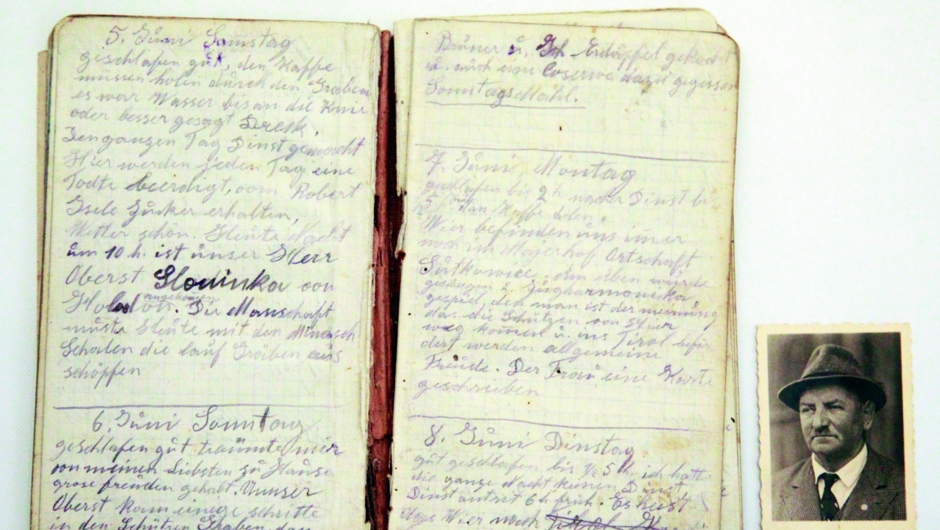 5. Juni Samstag
geschlafen gut, den Kaffe
müssen holen durch den Graben
es war Wasser bis an die Knie
oder besser gesagt Dreck.
Den ganzen Tag Dinst gemacht
Hier werden jeden Tag eine
Todte beerdigt, vom Robert
Isele Zucker erhalten,
Wetter schön. Heute Nacht
um 10 h. ist unser Herr
Oberst Slavinka von
angekommen
Die Manschaft
muste Heute mit den Menasch
Schalen die lauf Gräben aus
schöpfen
6. Juni Sonntag
geschlafen gut träumte mir
von meinen Liebsten zu Hause
grose freuden gehabt. Unser
Oberst kam einige schritte
in den Schützen Graben
Bruner u. Ich Erdäpfel gekocht
u. noch eine Coserve dazu gegessen
Sonntagsmahl.
7. Juni, Montag
geschlafen bis 2 h. nachts Dinst bis
5 den Kaffe holen.
Wier befinden uns imer
noch im Majerhof Ortschaft
Sutkowice. Am Aben wurde
gesungen z. Zugharmonicka
gespiel, den man ist der meinung
das die Schützen von Hier
weg komen u. ins Tirol beför
dert werden allgemeine
Freude. Der Frau eine Karte
geschrieben
8. Juni Dinstag
gut geschlafen bis ½ 5 h. ich hatte
die ganze Nacht keinen Dinst
Dinst antret 6 h früh. Es heist
Wier noch